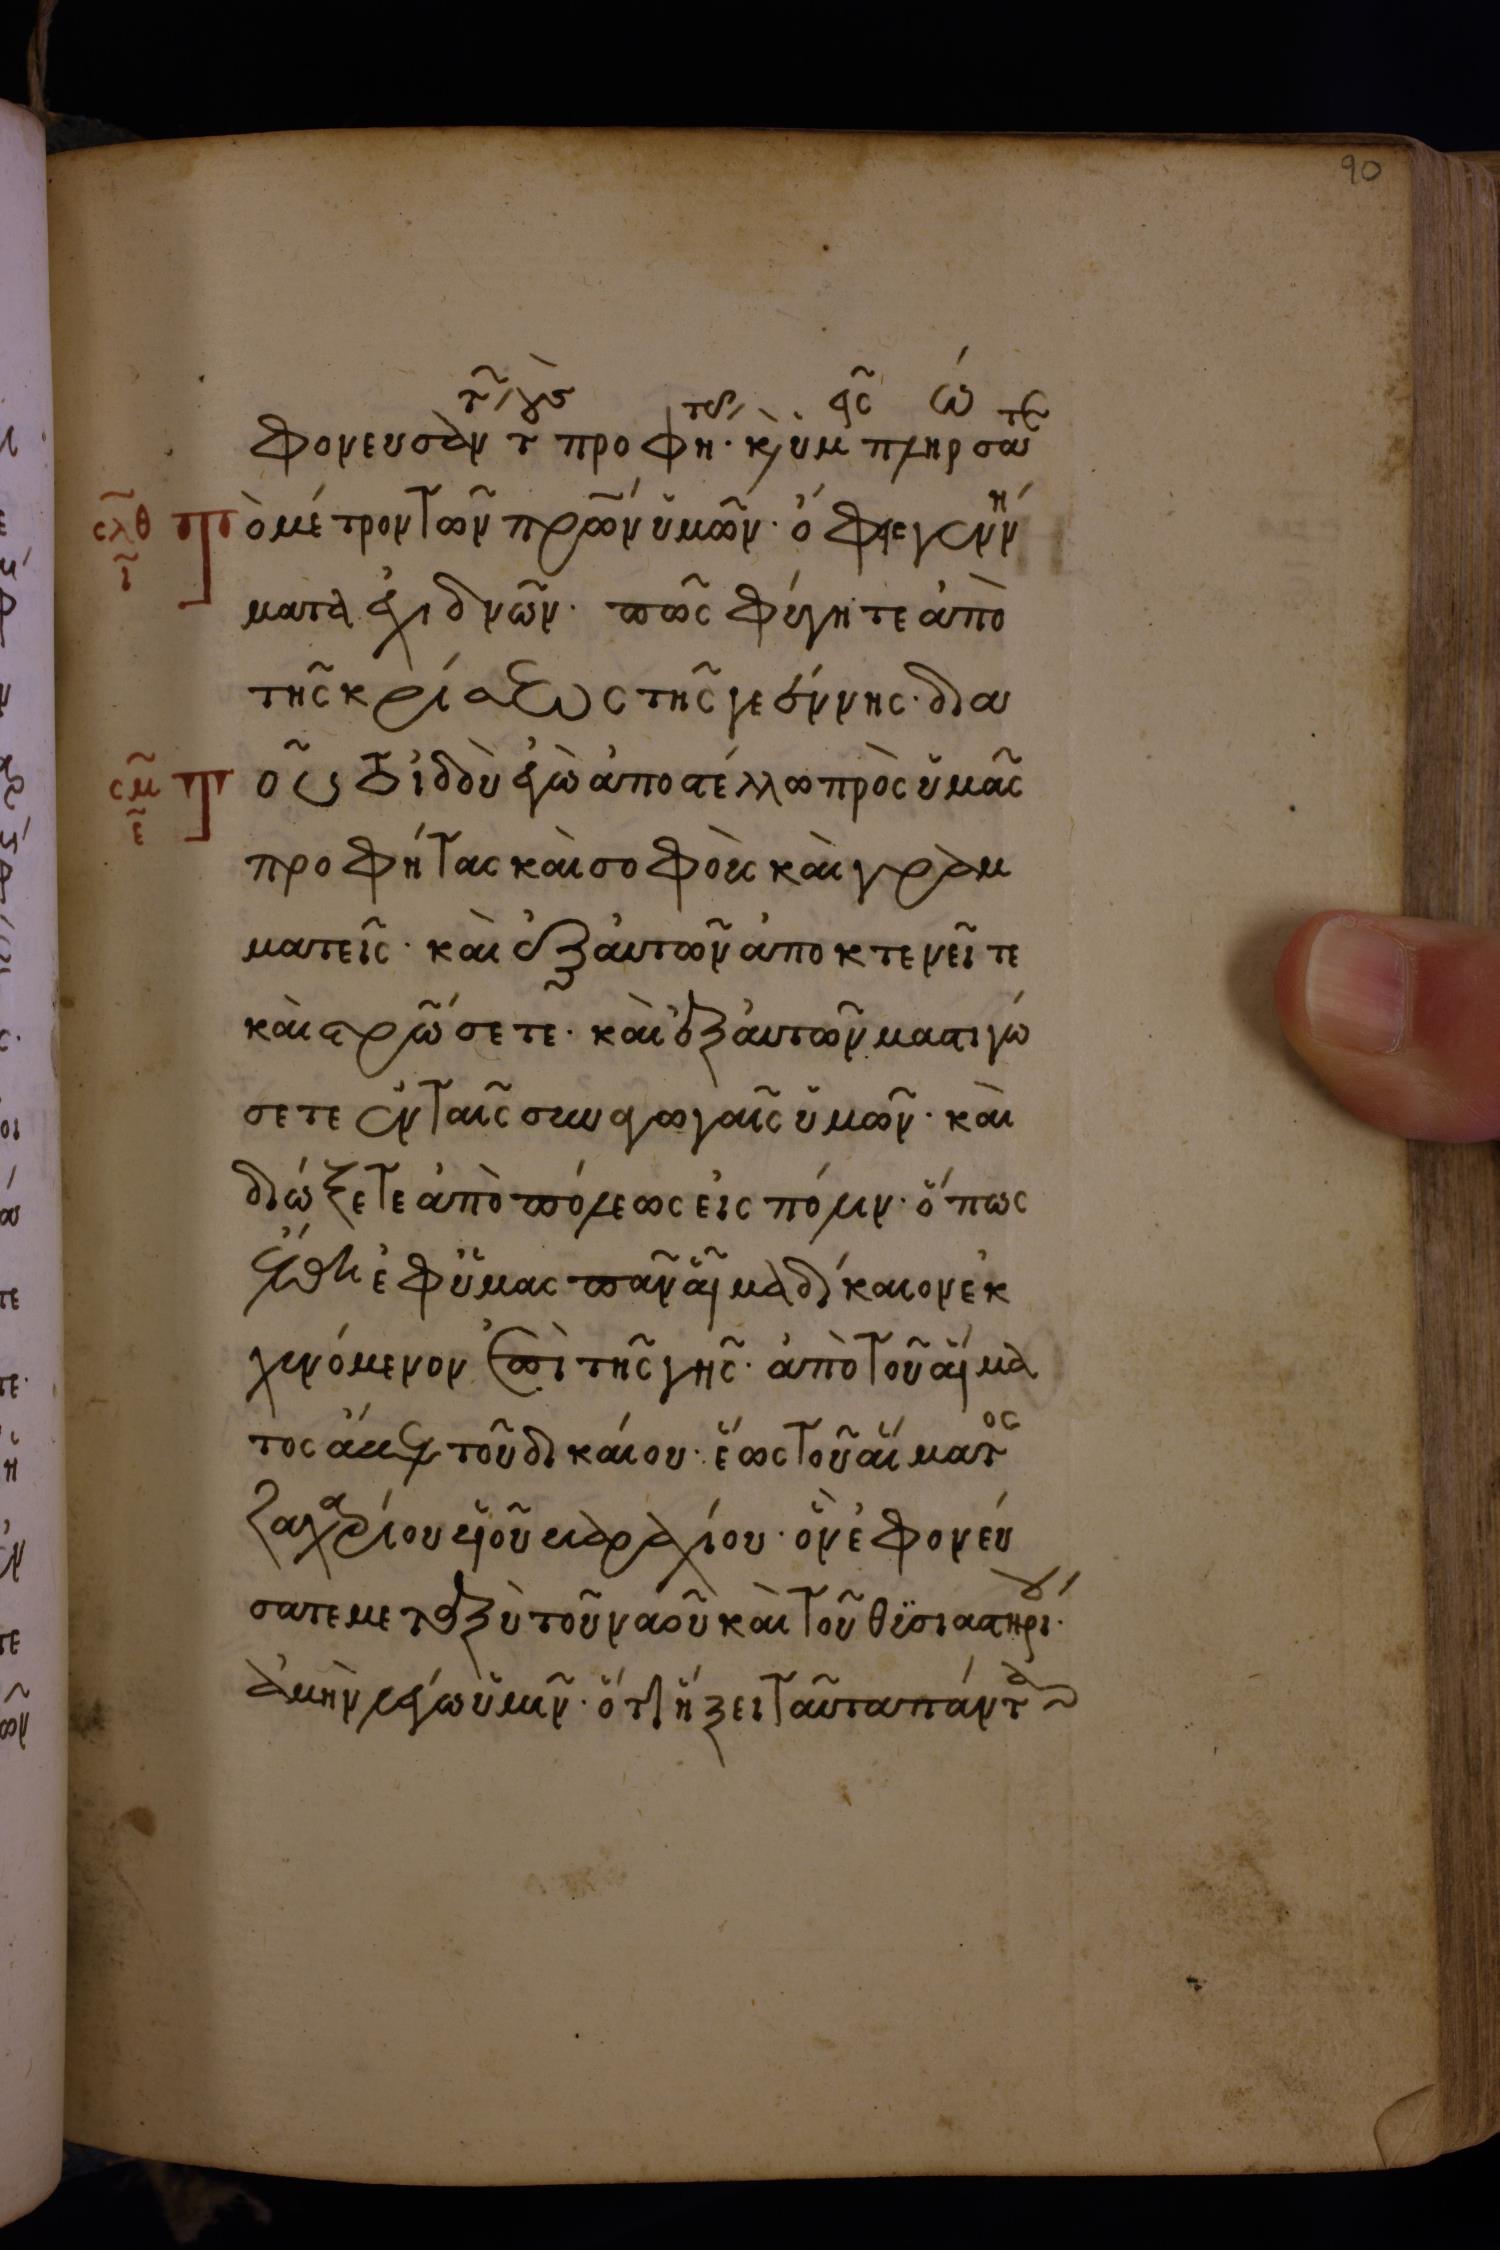 90
φονευσάντων τοὺς προφήτας· καὶ ὑμεῖς πληρώσατε
σλθ ὸ μέτρον τῶν πρῶν ὑμῶν· ὄφεις γεννή
ι ματα ἐχιδνῶν· πῶς φύγητε ἀπὸ
τῆς κρίσεως τῆς γεέννης· δια
σμ τοῦτο ἰδοὺ ἐγὼ ἀποστέλλω πρὸς ὑμᾶς
ε προφήτας καὶ σοφοὺς καὶ γραμ
ματεῖς· καὶ ἐξ αὐτῶν ἀποκτενεῖτε
καὶ στρώσετε· καὶ ἐξ αὐτῶν μαστιγώ
σετε ἐν ταῖς συναγωγαῖς ὑμῶν· καὶ
διώξετε ἀπὸ πόλεως εἰς πόλιν· ὅπως
ἔλθη ἐφ ὑμᾶς πᾶν αἷμα δίκαιον ἐκ
χυνόμενον ἐπὶ τῆς γῆς· ἀπὸ τοῦ αἵμα
τος ἄβελ τοῦ δικαίου· ἕως τοῦ αἵματος
ζαχαρίου υἱοῦ βαραχίου· ὃν ἐφονεύ
σατε μεταξὺ τοῦ ναοῦ καὶ τοῦ θϋσιαστηρίου·
ἀμὴν λέγω ὑμῖν· ὅτι ἥξει ταῦτα πάντα